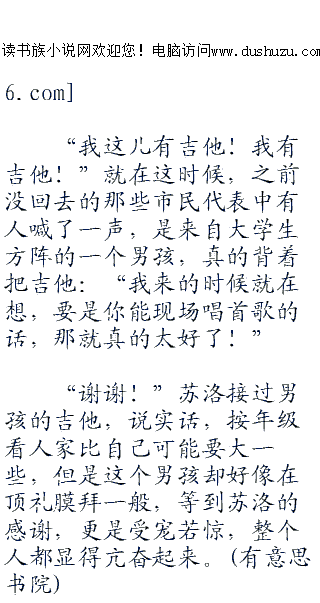 读书族小说网欢迎您！电脑访问www.dushuzu.com
6.com]
“我这儿有吉他！我有
吉他！”就在这时候，之前
没回去的那些市民代表中有
人喊了一声，是来自大学生
方阵的一个男孩，真的背着
把吉他：“我来的时候就在
想，要是你能现场唱首歌的
话，那就真的太好了！”
“谢谢！”苏洛接过男
孩的吉他，说实话，按年级
看人家比自己可能要大一
些，但是这个男孩却好像在
顶礼膜拜一般，等到苏洛的
感谢，更是受宠若惊，整个
人都显得亢奋起来。(有意思
书院)